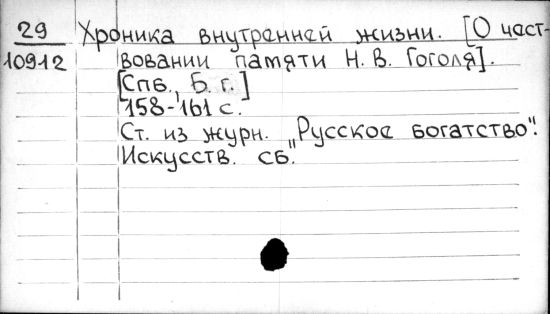 29 Хроника внутренней жизни. [О чест-
10912 вовании памяти Н. В. Гоголя].
[Спб., Б. г.]
158-161 с.
Ст. из журн. „Русское богатство".
Искусств. сб.